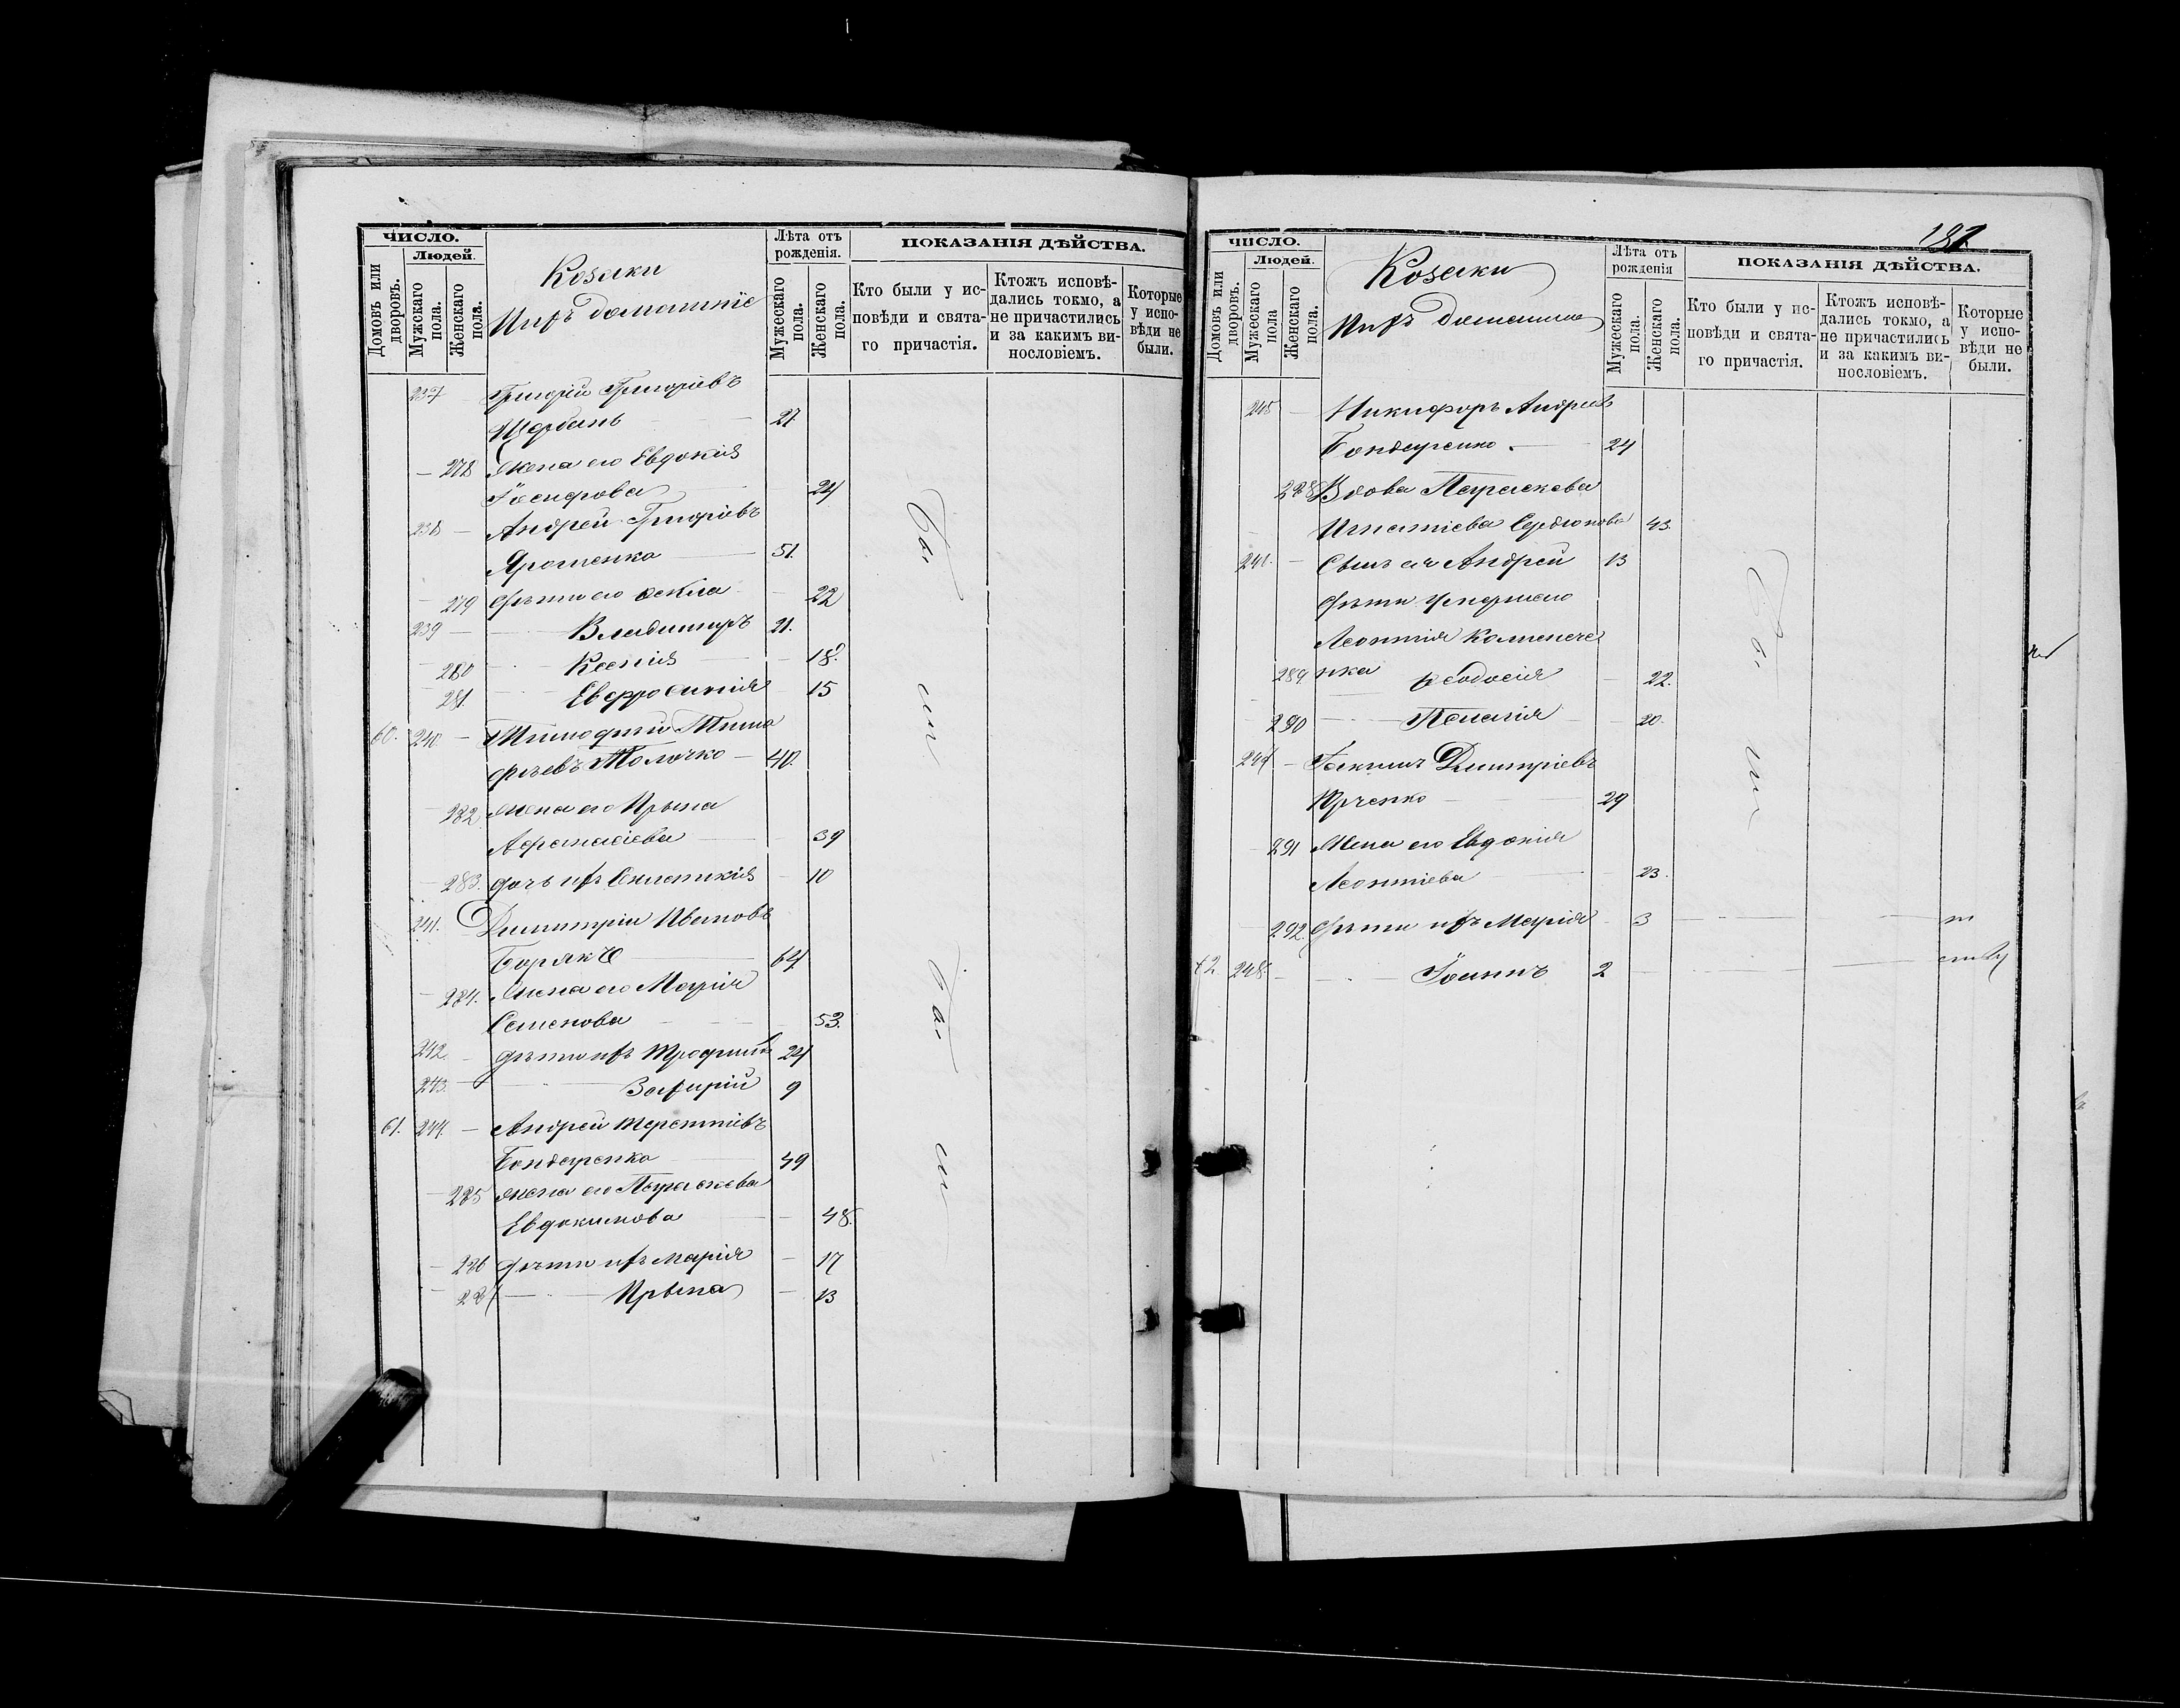 ЧИСЛО.
Людей.
Домовъ или дворовъ.
Мужскаго пола.
Женскаго пола.
Козаки
Ихъ домашніе
Лѣта отъ рожденія.
Мужескаго пола.
Женскаго пола.
ПОКАЗАНІЯ ДѢЙСТВА.
Кто были у исповѣди и святаго причастія.
Ктожъ исповѣдались токмо, а не причастились и за какимъ винословіемъ.
Которые у исповѣди не были.
237 Григорій Григоріевъ
Щербань 27
278 Жена его Евдокія
Іосифова 24
238 Андрей Григоріевъ
Ярошенко 51.
279 Дѣти его 22
239 Владимиръ 21.
280 Ксенія 18.
281. Евфросинія 15
60. 240. Тимофей Тимо
фѣевъ Толочко 40.
282 жена его Ирына
Афанасіева 39
283. дочь ихъ 10
241. Димитрій Ивановъ
Борякъ 64
284. Жена его Марія
Семенова 53.
242. дѣти ихъ Трофимъ 24
243. 9
61. 244. Андрей Терентіевъ
Бондаренко 49
285 жена его Параскева
Евдокимова 48.
286 дѣти ихъ Марія 17
287 Ирына 13
Бы
ли
Бы
ли
187
ЧИСЛО.
Людей.
Домовъ или дворовъ.
Мужескаго пола
Женскаго пола.
Козаки
Ихъ домашніе
Лѣта отъ рожденія
Мужескаго пола.
Женскаго пола.
ПОКАЗАНІЯ ДѢЙСТВА.
Кто были у исповѣди и святаго причастія.
Ктожъ исповѣдались токмо, а не причастились и за какимъ винословіемъ.
Которые у исповѣди не были.
245 Никифоръ Андреевъ
Бондаренко 24
288 Вдова Параскева
Игнатіева Сердюкова 43.
Сынъ ея Андрей 13
Дѣти умершаго
Леонтія
289 Ѳеодосія 22.
290 Пелагія 20.
247 Іакимъ Димитріевъ
Юрченко 29
291 Жена его Евдокія
Леонтіева 23.
292. Дѣти ихъ Марія 3
62 248. Іоаннъ 2
Бы
ли